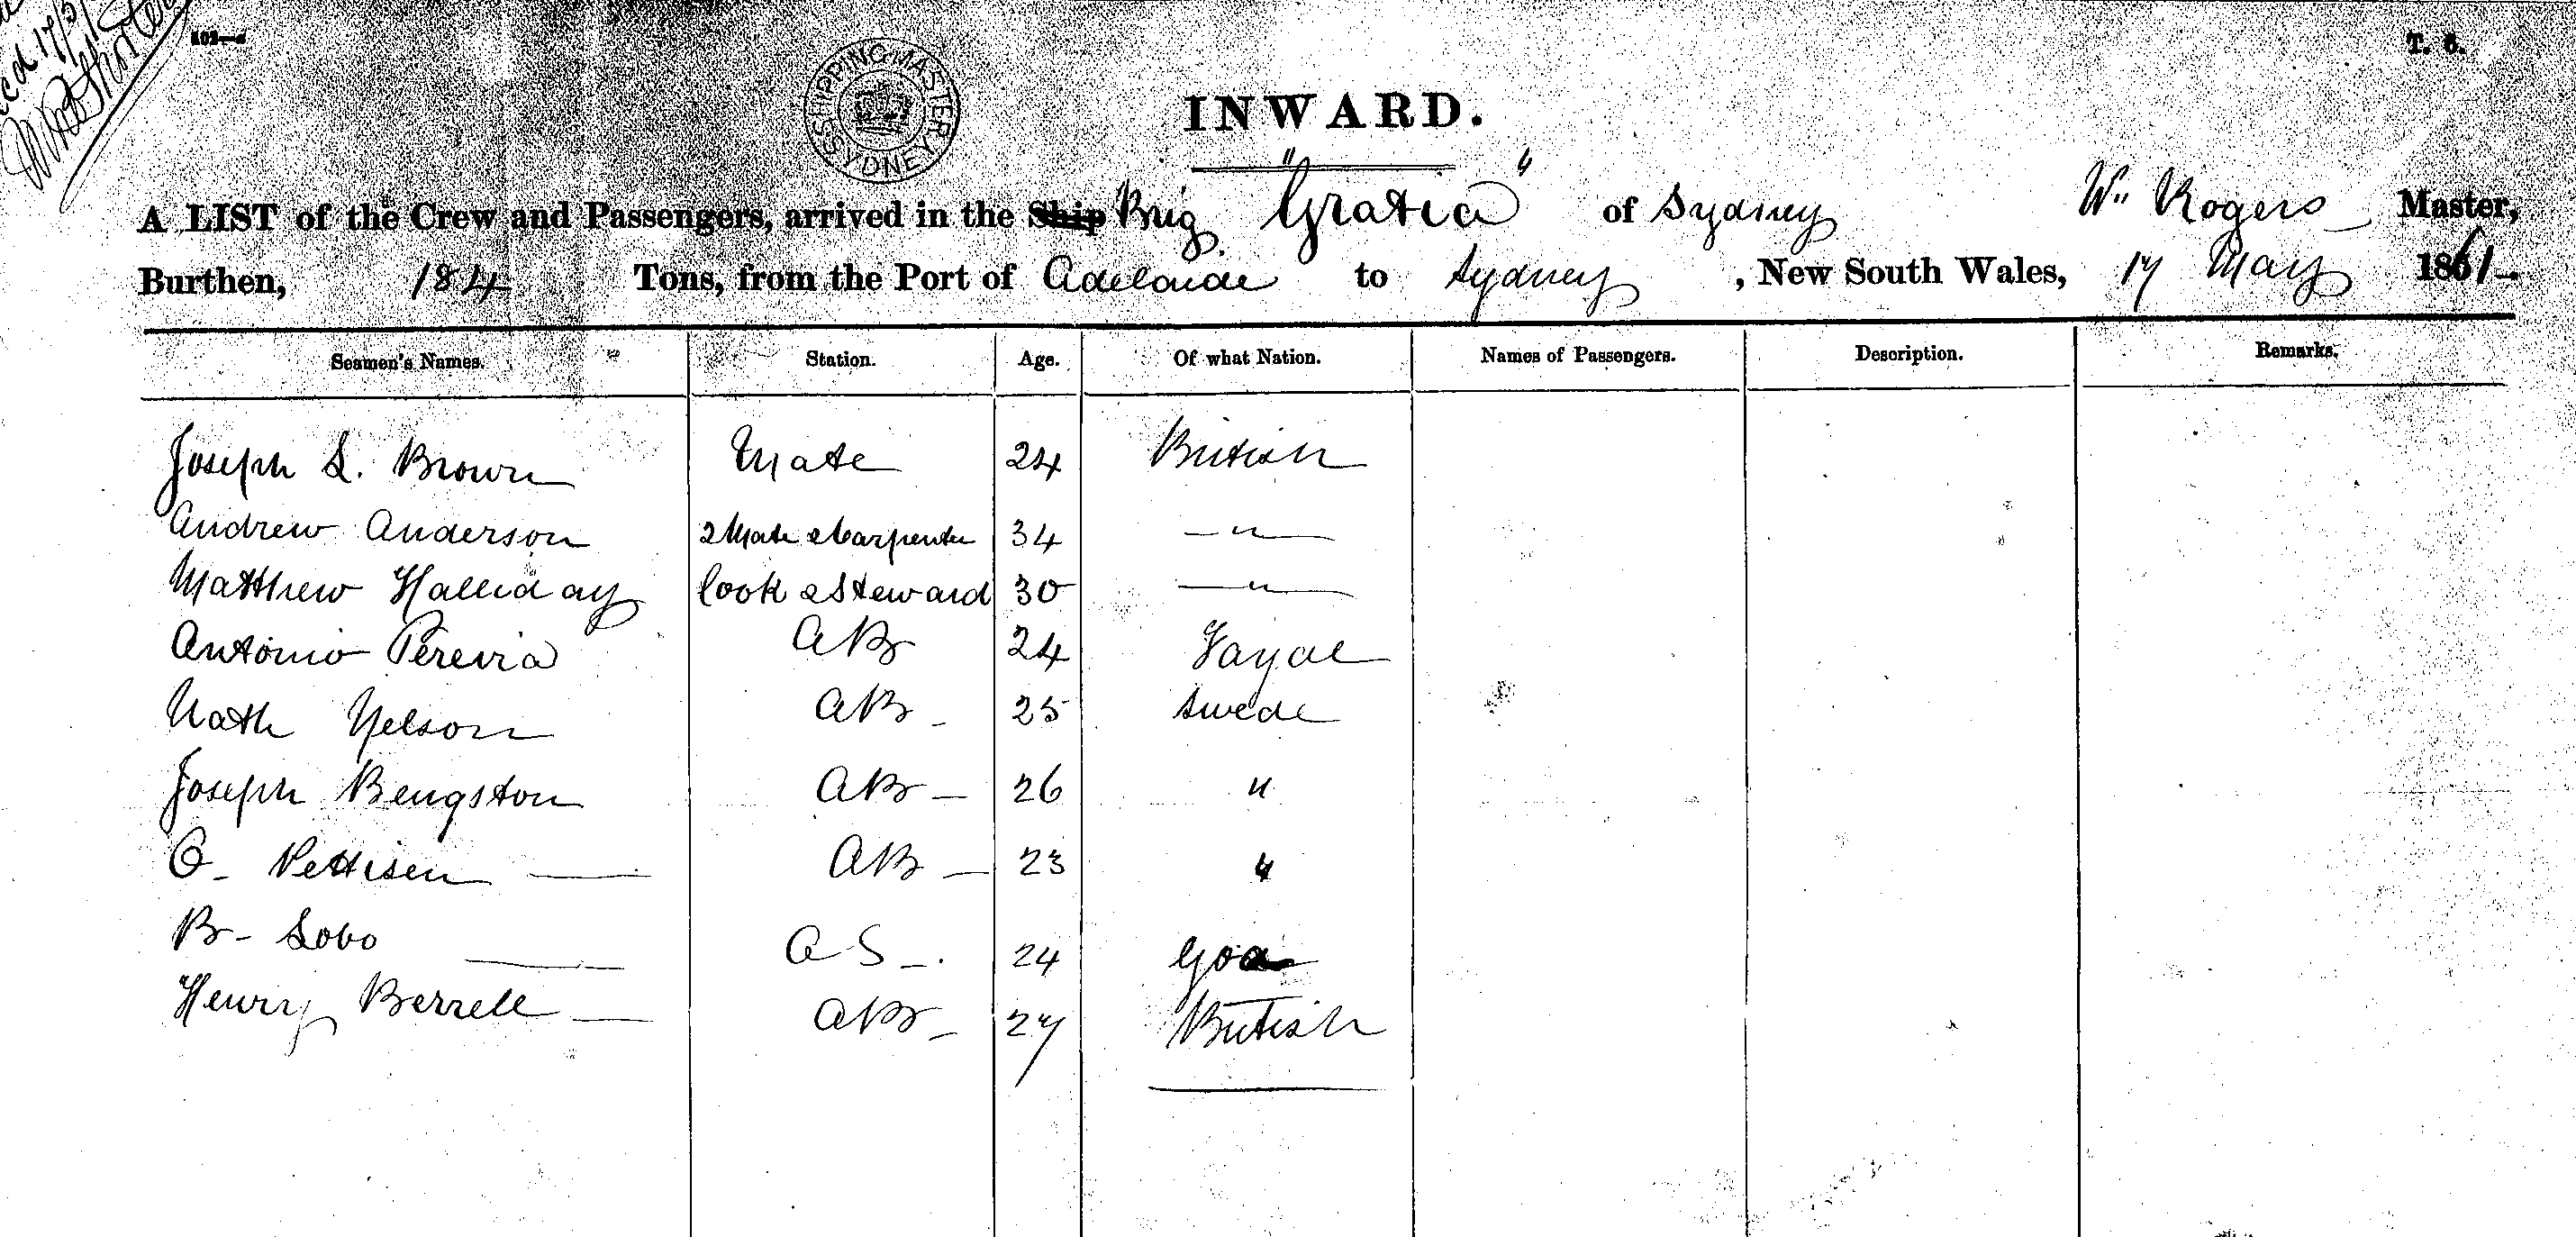 T. 5.
SHIPPING MASTER SYDNEY
INWARD.
A LIST of the Crew and Passengers, arrived in the Ship Brig "Gratia" of Sydney Wm Rogers Master,
Burthen, 184 Tons, from the Port of Adelaide to Sydney, New South Wales, 17 May 1861
Seamen's Names. Station. Age. Of what Nation. Names of Passengers. Description. Remarks.
Joseph L. Brown Mate 24 British
Andrew Anderson 2 Mate & Carpenter 34 — " —
Matthew Halliday Cook & Steward 30 — " —
Antonio Pereira AB 24 Fayal
Nath Nelson AB - 25 Swede
Joseph Bengston AB - 26 "
O. Pettisen AB - 23 "
B- Lobo OS -. 24 Goa
Henry Berrell AB - 27 British